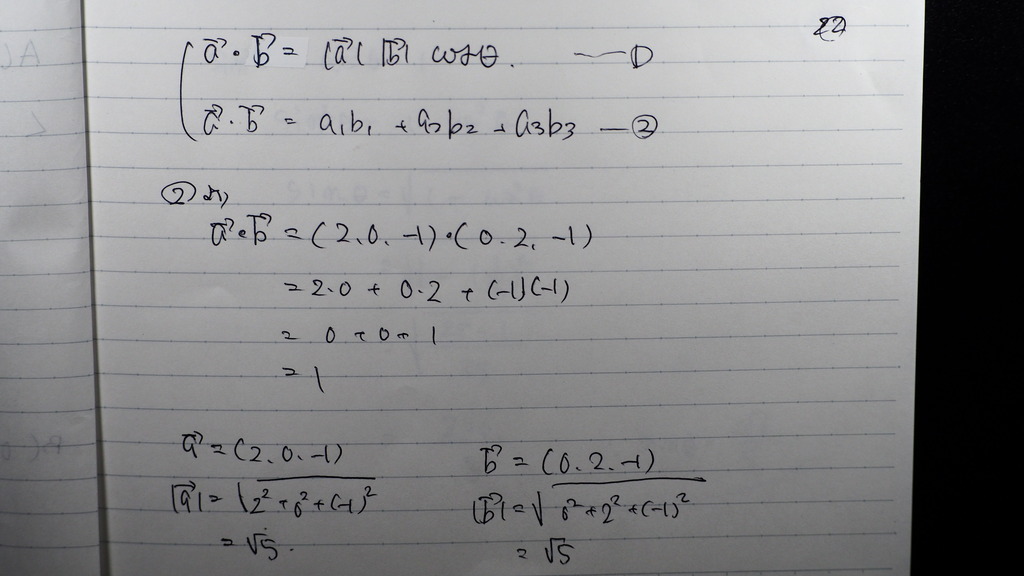 22
a⃗・b⃗ = |a⃗| |b⃗| cosθ. ― ①
a⃗・b⃗ = a₁b₁ + a₂b₂ + a₃b₃ ― ②
②より
a⃗・b⃗ = (2.0.-1)・(0.2.-1)
= 2・0 + 0・2 + (-1)(-1)
= 0 + 0 + 1
= 1
a⃗ = (2.0.-1)
|a⃗| = √2² + 0² + (-1)²
= √5.
b⃗ = (0.2.-1)
|b⃗| = √0² + 2² + (-1)²
= √5